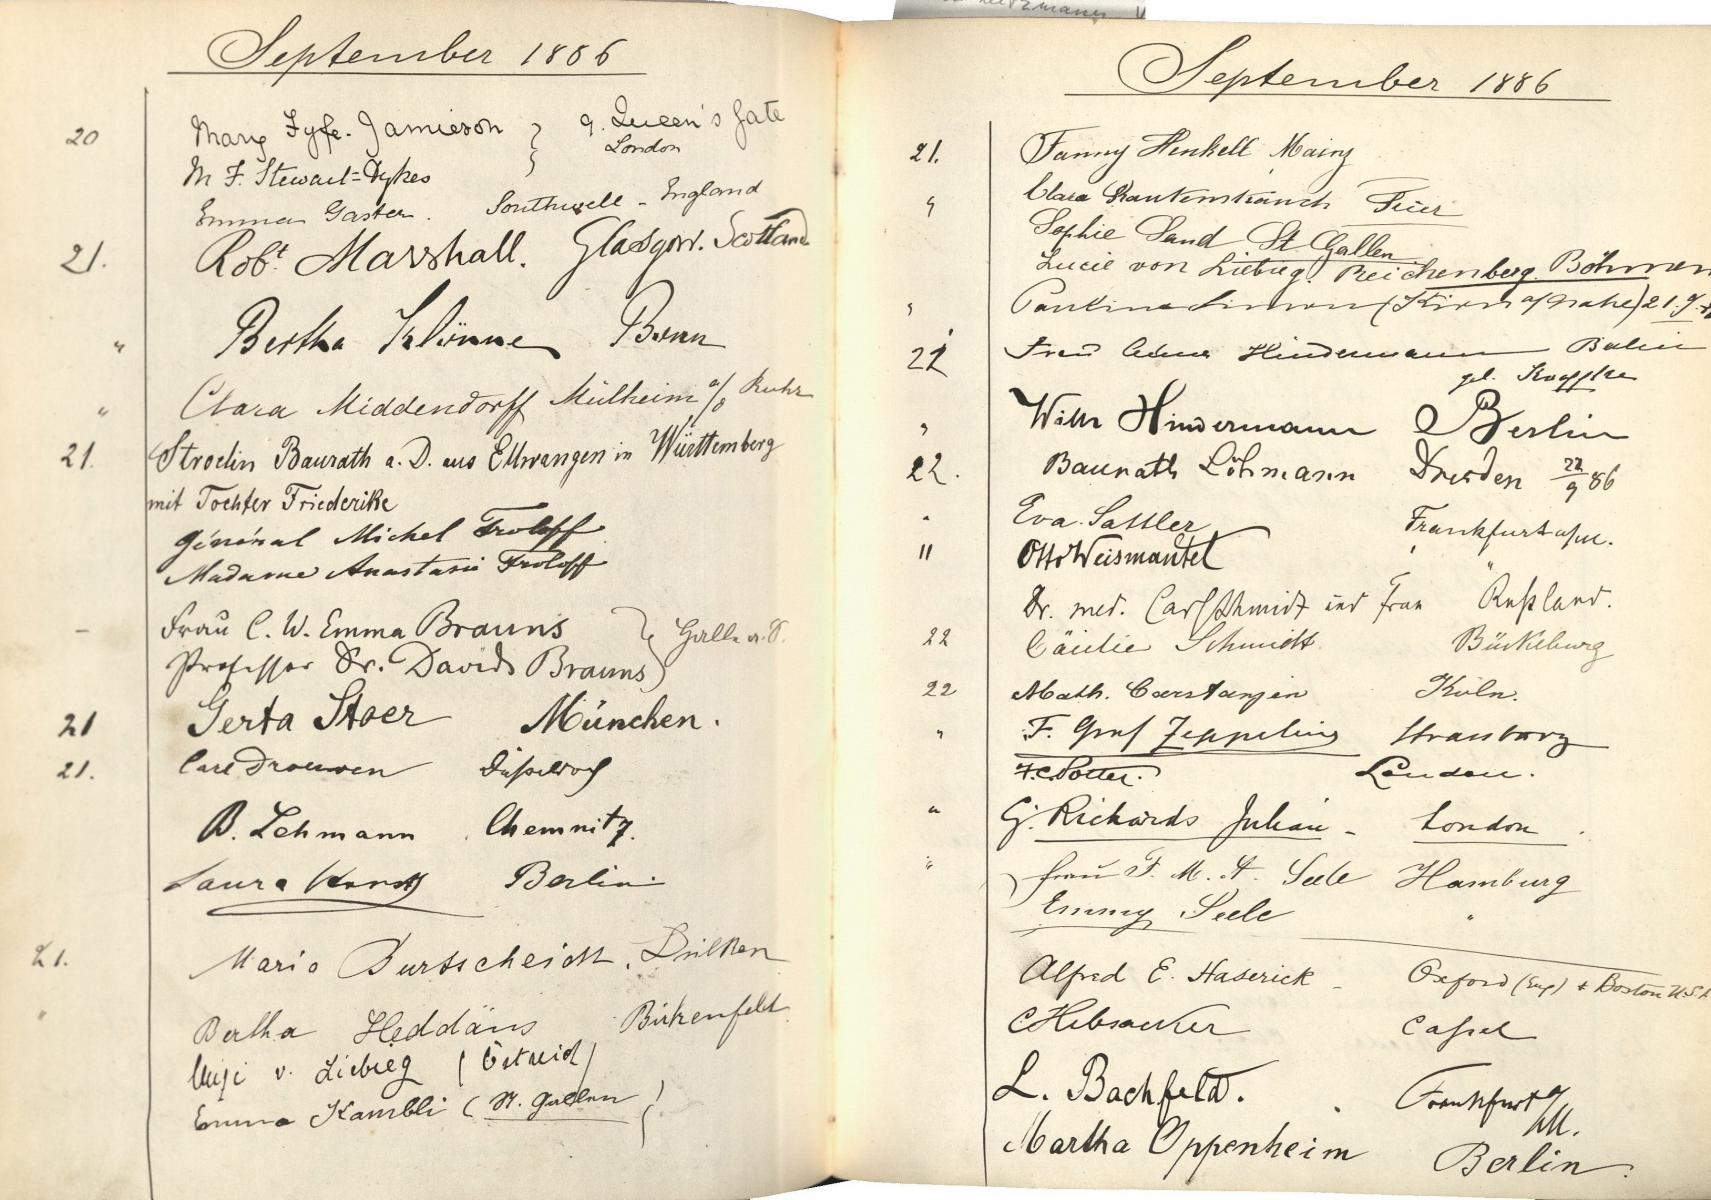 September 1886
20 Mary Fyfe-Jamieson 9. Queen's Gate
London
M F. Stewart=Dykes
Emma Gaster. Southwell - England
21. Robt. Marshall. Glasgow. Scotland
" Bertha Klönne Bonn
" Clara Middendorff Mülheim a/d Ruhr
21. Stroelin Baurath a. D. aus Ellwangen in Württemberg
mit Tochter Friederike
général Michel Froloff
Madame Anastasie Froloff
- Frau C. W. Emma Brauns
Professor Dr. David Brauns Halle a. S.
21 Gerta Stoer München.
21. Carl Drouven Düsseldorf
B. Lehmann Chemnitz.
Laura Berlin.
21. Maria Burtscheidt, Dülken
" Bertha Heddäus Birkenfeld
v. Liebieg (Östreich)
Emma Kambli (St. Gallen)
September 1886
21. Fanny Henkell Mainz
" Clara Rautenstrauch Trier
Sophie Sand St Gallen
Lucie von Liebieg. Reichenberg. Böhmen
" Simon (Kirn a/Nahe) 21.9.
22 Frau Hindermann Berlin
geb.
" Willy Hindermann Berlin
22. Baurath Löhmann Dresden 22/9 86
" Eva Sattler Frankfurt a/M.
" Otto Weismantel "
Dr. med. Carl Schmidt und Frau Rußland.
22 Cäcilie Schmidt Bückeburg
22 Math. Carstanjen Köln.
" F. Graf Zeppelin Strassburg
F. C. Potter. London.
" G. Richards Julian - London
" Frau F. M. A. Seele Hamburg
Emmy Seele "
Alfred E. Haserick - Oxford (Eng) + Boston U.S.A
C Hebsacker Cassel
L. Bachfeld. Frankfurt a/M.
Martha Oppenheim Berlin.